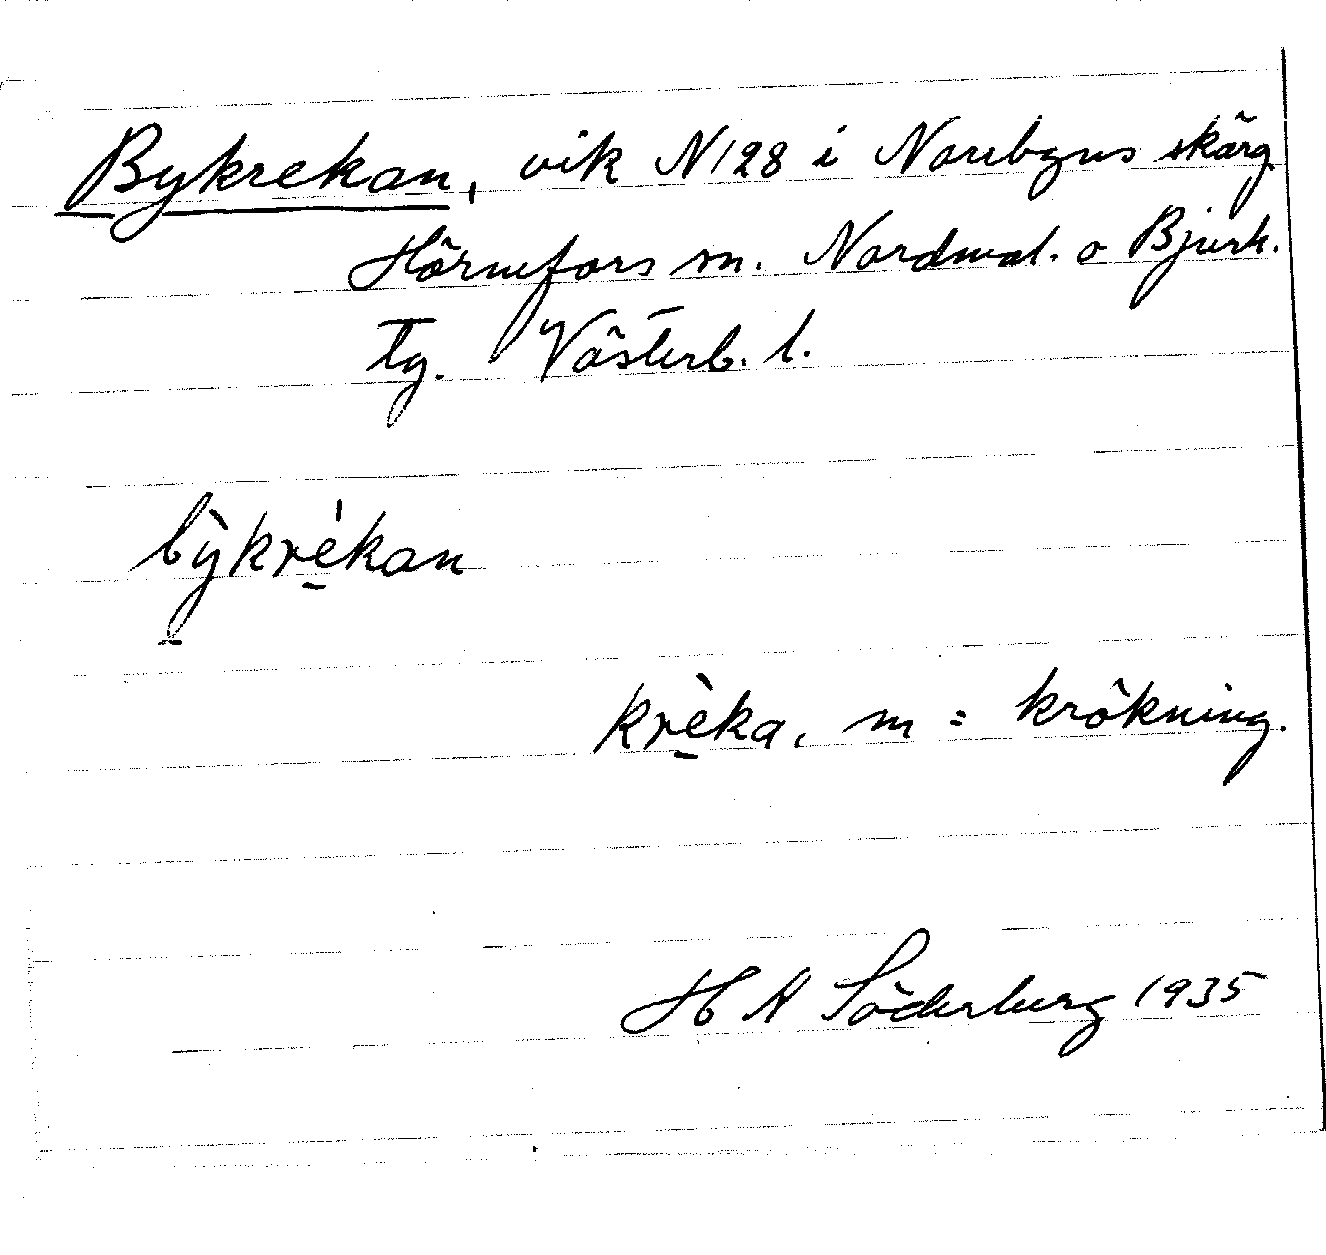 Bykrekan, vik N128 i Norrbyns skärg.
Hörnefors sn. Nordmal. o Bjurh.
tg. Västerb. l.
bỳkrékan
krèka, m = krökning.
H A Söderberg 1935